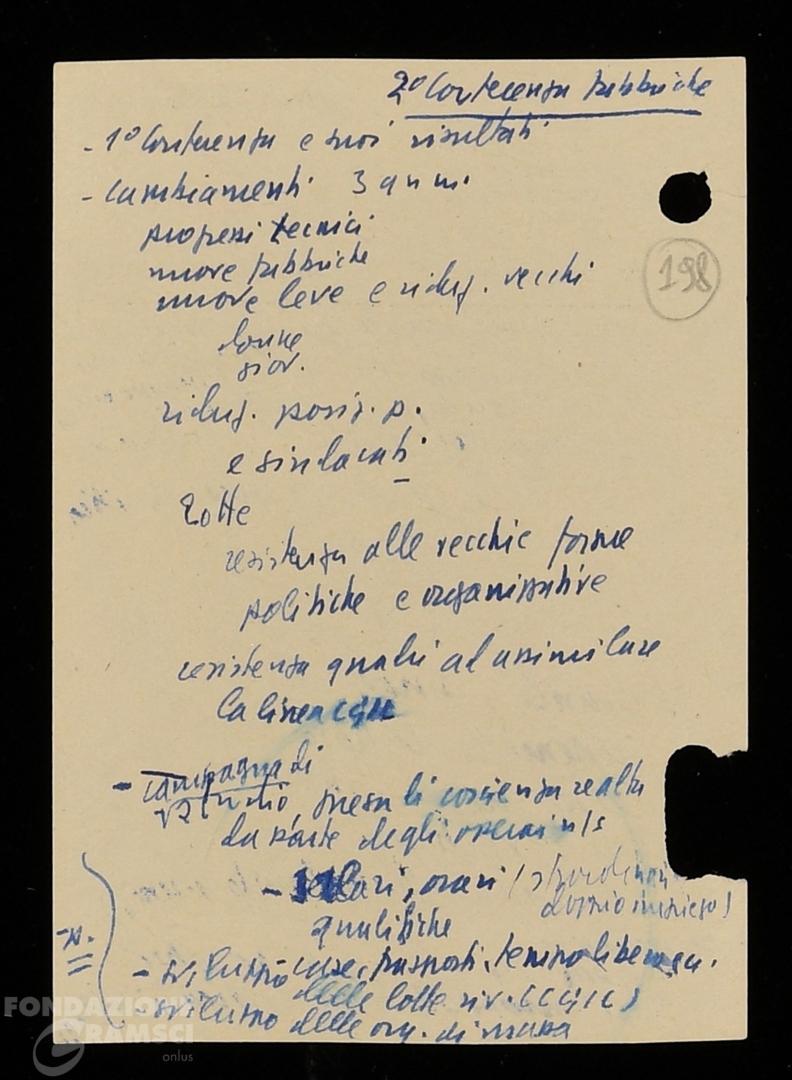 2° Conferenza fabbriche
- 1° Conferenza e suoi risultati
- cambiamenti 3 anni
progressi tecnici
nuove fabbriche
nuove leve e riduz. vecchi
donne
giov.
riduz. posiz. p.
e sindacati
Lotte
resistenza alle vecchie forme
politiche e organizzative
resistenza quadri ad assimilare
la linea CGIL
- campagna di
studio, presa di coscienza realtà
da parte degli operai
- salari, orari (straordinari
doppio impiego)
qualifiche
case, trasporti, tempo libero
- sviluppo delle lotte riv. (CGIL)
- sviluppo delle org. di massa
- p.
198
FONDAZIONE
GRAMSCI
onlus